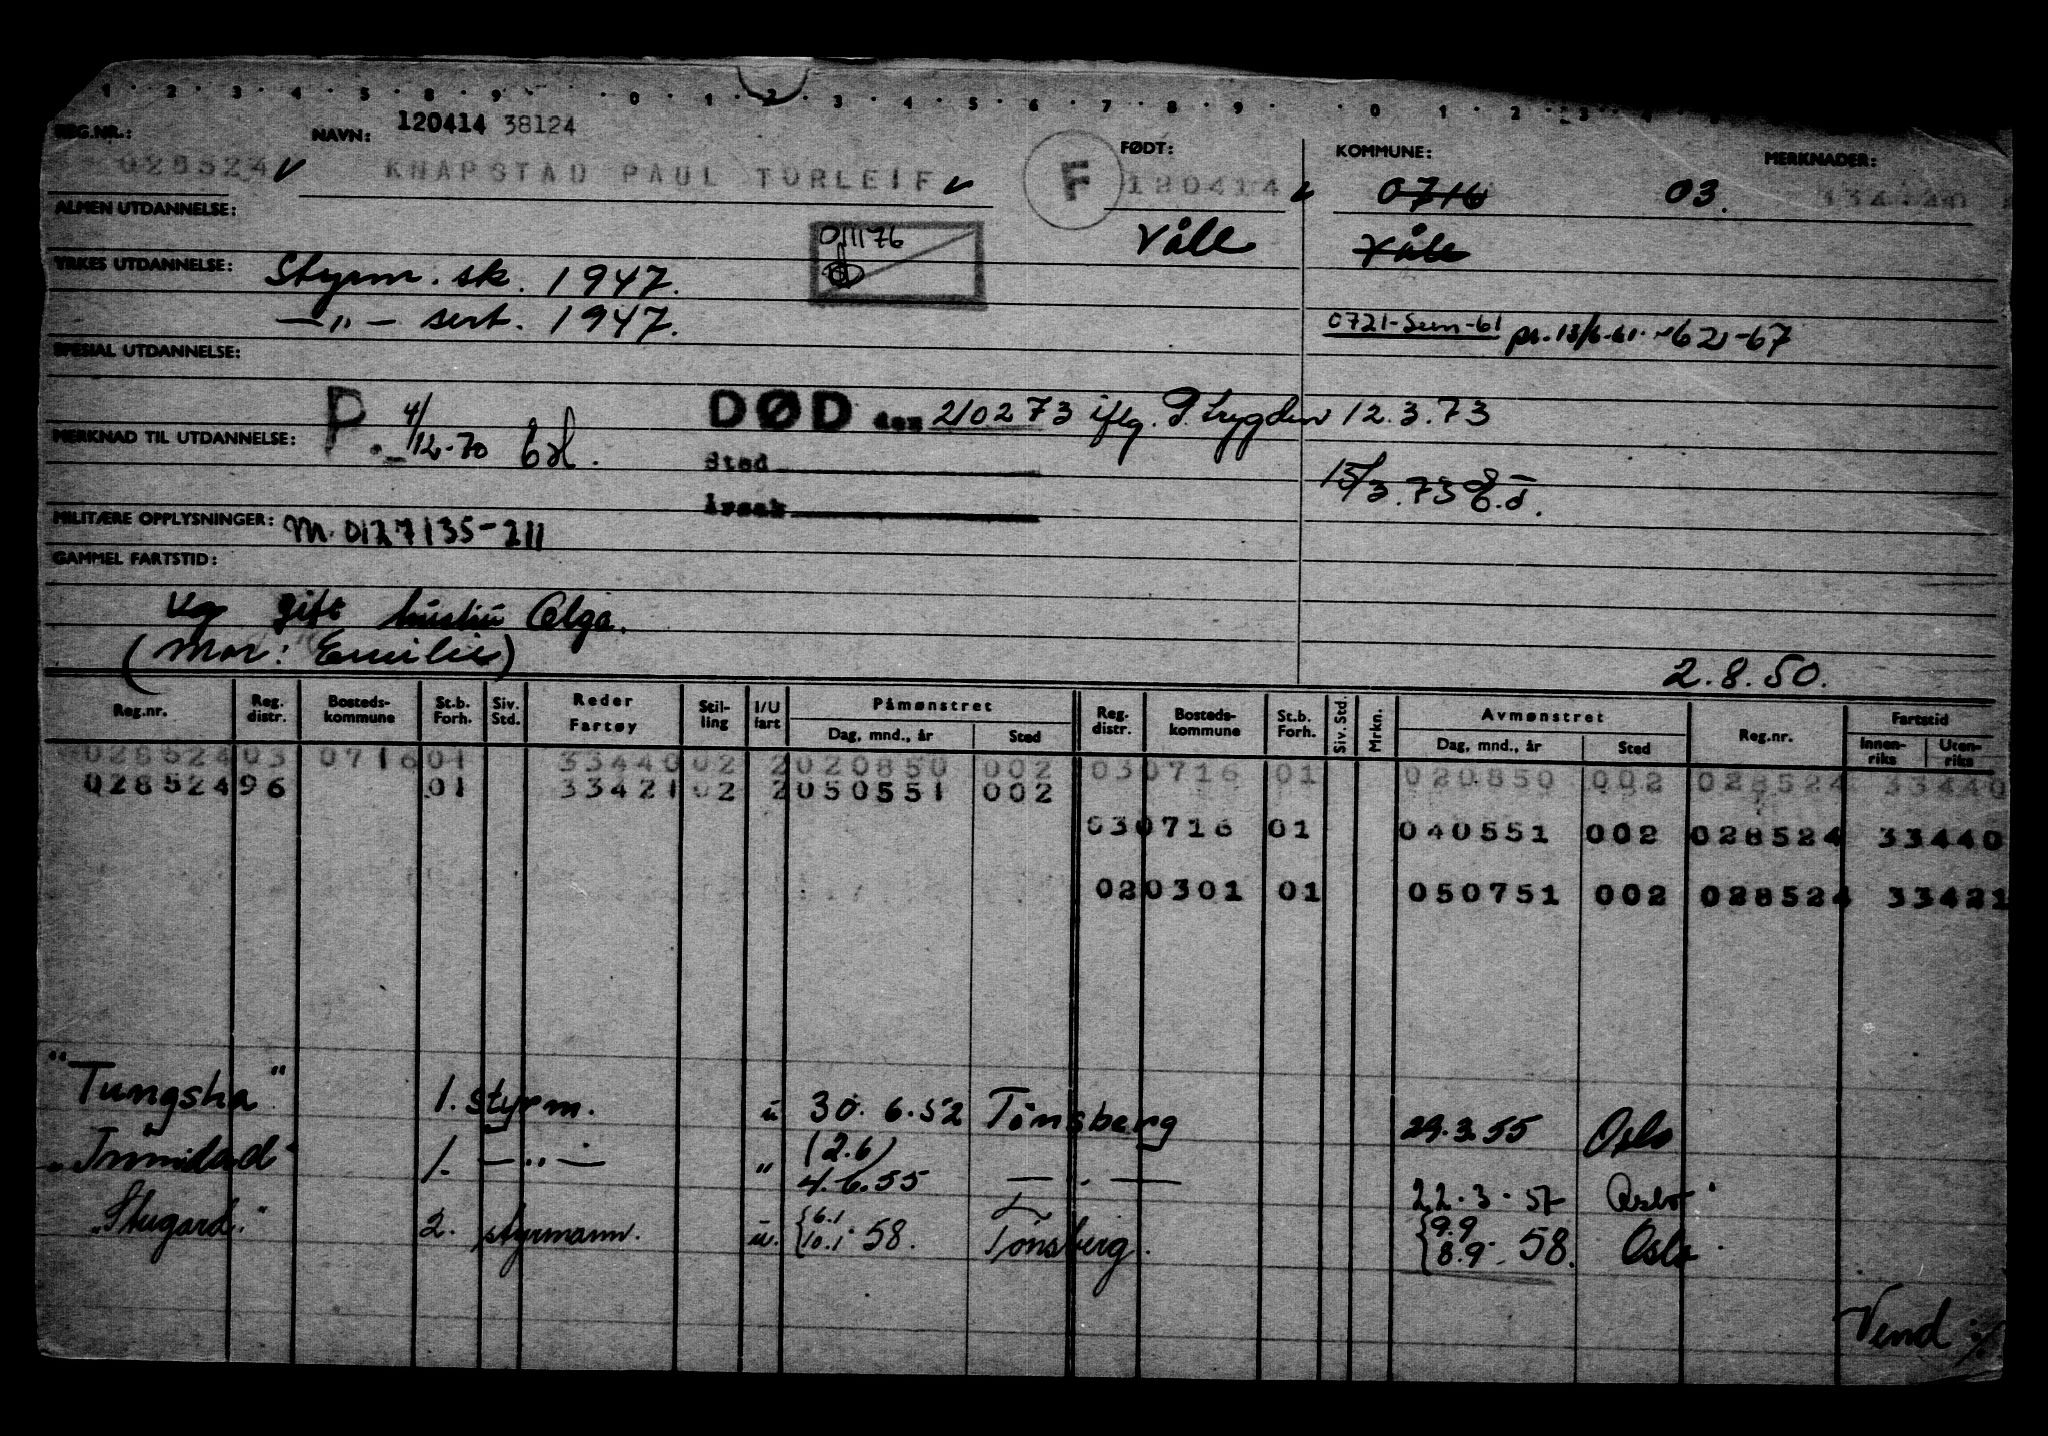 1 · 2 · 3 · 4 · 5 · 8 · 9 · · 0 · 1 · 2 · 3 · 4 · 5 · 6 · 7 · 8 · 9 · · 0 · 1 · 2 · 3 · 4
REG.NR.: NAVN: 120414 38124 FØDT: KOMMUNE: MERKNADER:
028524 KNAPSTAD PAUL TORLEIF F 120414 0716 03.
ALMEN UTDANNELSE:
011176 Våle Våle
YRKES UTDANNELSE: Styrm. sk. 1947.
—„— sert. 1947.
0721-Sem-61 pr. 13/6-61.
SPESIAL UTDANNELSE:
P. 4/12-70 DØD den 210273 iflg. P. trygden 12.3.73
MERKNAD TIL UTDANNELSE:
Sted
15/3.73
Årsak
MILITÆRE OPPLYSNINGER: M. 0127135-211
GAMMEL FARTSTID:
gift hustru Olga.
(Mor: Emilie)
2.8.50.
Reg.nr. Reg. distr. Bosteds-kommune St.b. Forh. Siv. Std. Reder Fartøy Stil-ling I/U fart Påmønstret Dag, mnd., år Sted Reg. distr. Bosteds-kommune St.b. Forh. Siv. Std. Mrkn. Avmønstret Dag, mnd., år Sted Reg.nr. Fartstid Innen-riks Uten-riks
028524 03 0716 01 33440 02 2 020850 002 03 0716 01 020850 002 028524 33440
028524 96 01 33421 02 2 050551 002
03 0716 01 040551 002 028524 33440
02 0301 01 050751 002 028524 33421
"Tungsha" 1. styrm. u 30.6.52 Tönsberg 29.3.55 Oslo
"Trinidad" 1. —"— " (2.6) 4.6.55 — " — 22.3.57 Oslo
"Stugard." 2. styrmann. u. {6.1 10.1 58. Tönsberg. {9.9 8.9 58. Oslo
Vend